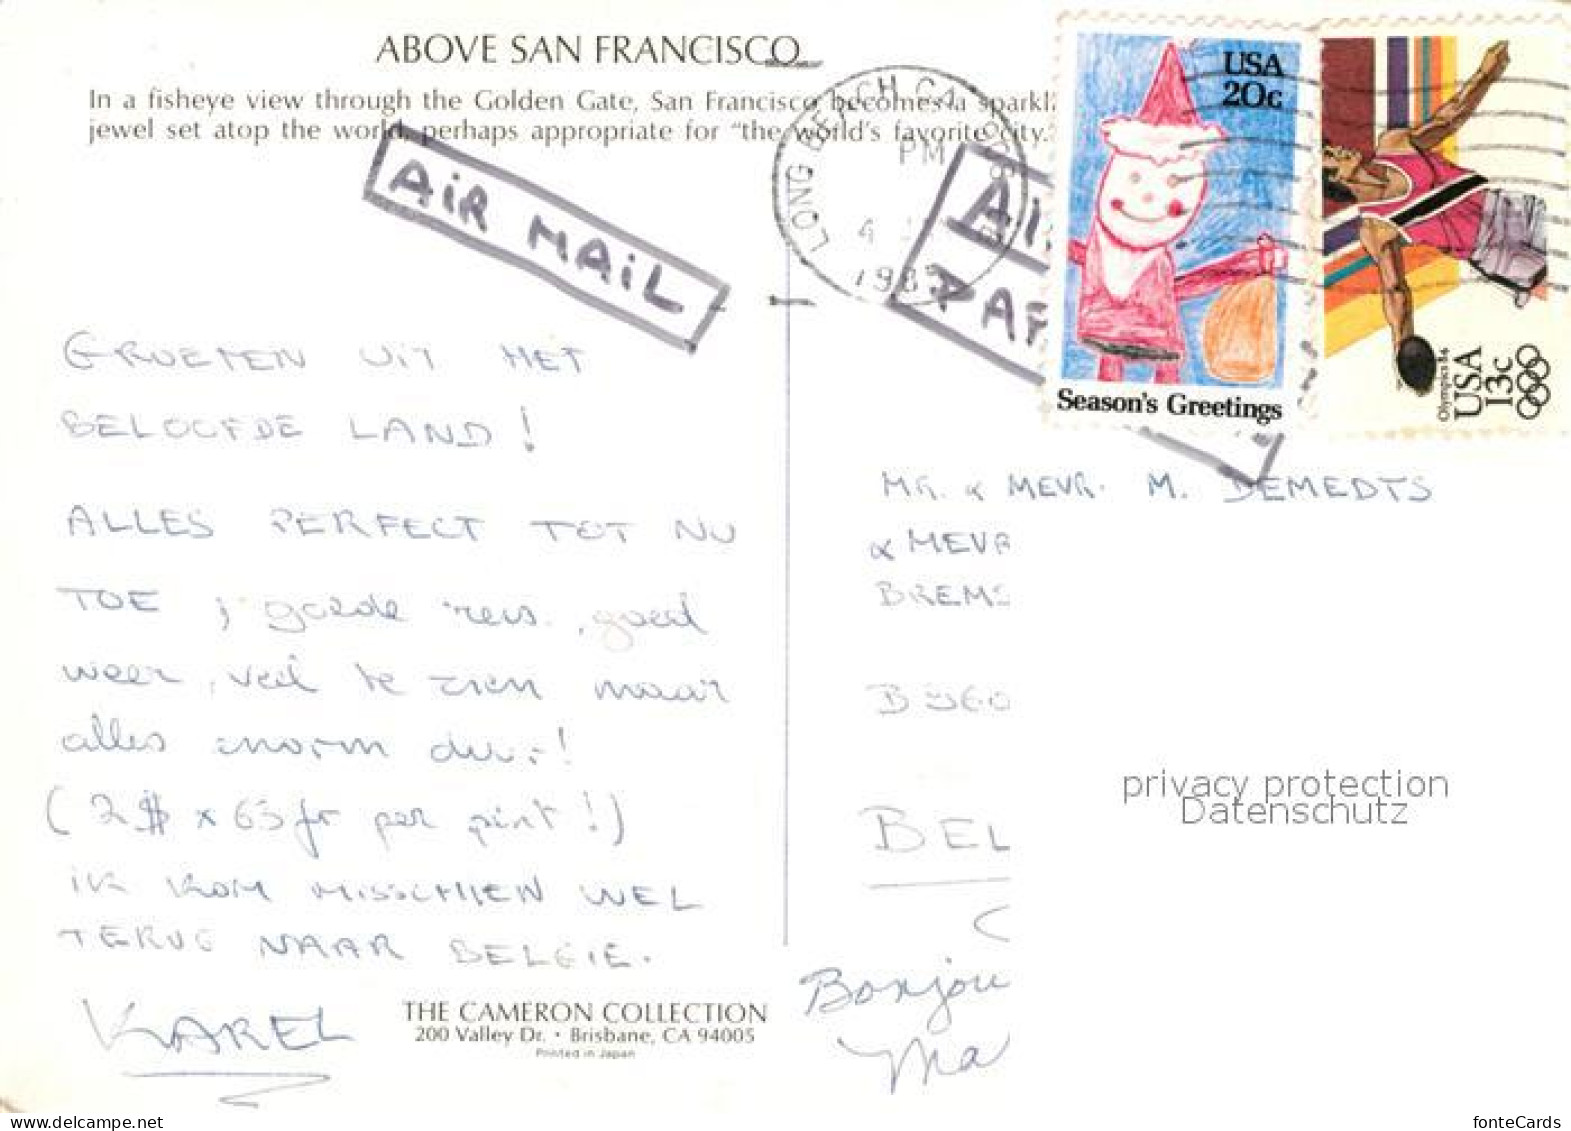 ABOVE SAN FRANCISCO
In a fisheye view through the Golden Gate, San Francisco becomes a sparkl
jewel set atop the world, perhaps appropriate for "the world's favorite city."
AIR MAIL
LONG BEACH CA
PM
4
USA
20c
Season's Greetings
Olympics 84
USA
13c
GROETEN UIT HET
BELOOFDE LAND!
ALLES PERFECT TOT NU
TOE ; goede reis, goed
weer, veel te zien maar
alles enorm duur!
(2$ x 63 fr per pint!)
IK KOM MISSCHIEN WEL
TERUG NAAR BELGIE.
KAREL
THE CAMERON COLLECTION
200 Valley Dr. • Brisbane, CA 94005
Printed in Japan
MR. & MEVR. M. DEMEDTS
& MEVR
BREMS
BEL
Bonjou
Ma
privacy protection
Datenschutz
www.delcampe.net
fonteCards